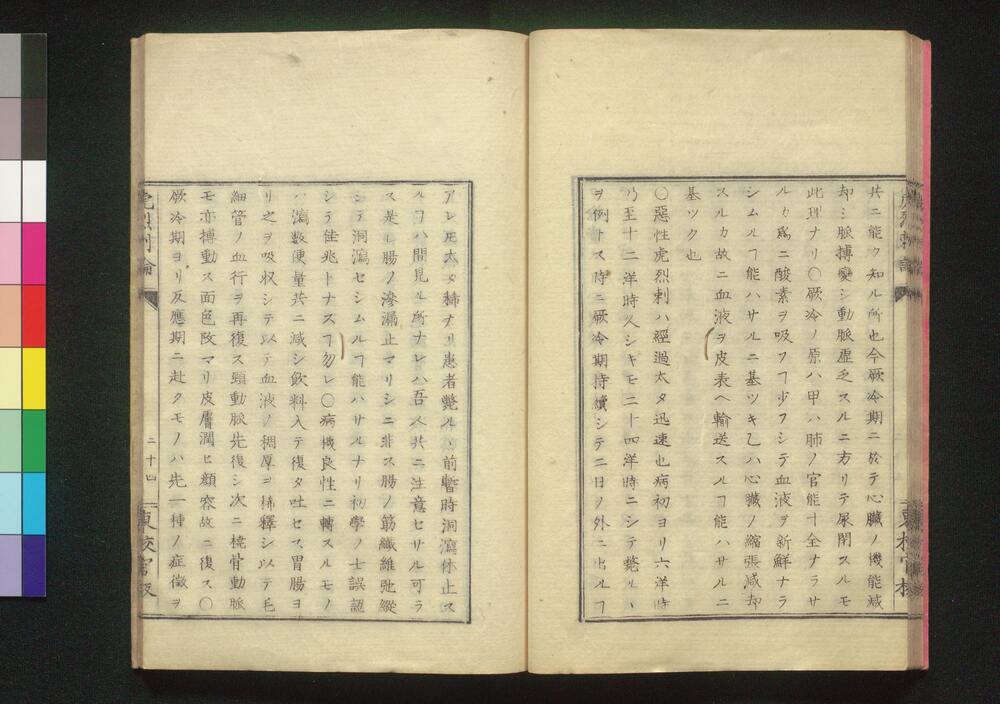 共ニ能ク知ル所也今厥冷期ニ於テ心臓ノ機能減
却シ脈搏變シ動脈虚乏スルニ方リテ尿閉スルモ
此理ナリ○厥冷ノ原ハ甲ハ肺ノ官能十全ナラサ
ルカ爲ニ酸素ヲ吸フヿ少フシテ血液ヲ新鮮ナラ
シムルヿ能ハサルニ基ツキ乙ハ心臓ノ縮張減却
スルカ故ニ血液ヲ皮表ヘ輸送スルヿ能ハサルニ
基ツク也
○惡性虎烈刺ハ經過太タ迅速也病初ヨリ六洋時
乃至十二洋時久シキモ二十四洋時ニシテ斃ルヽ
ヲ例トス時ニ厥冷期持續シテ二日ノ外ニ出ルヿ
アレ𪜈太タ稀ナリ患者斃ルヽ前暫時洞瀉休止ス
ルヿハ間見ル所ナレハ吾人共ニ注意セサル可ラ
ス是レ腸ノ滲漏止マリシニ非ス腸ノ筋纖維弛縱
シテ洞瀉セシムルヿ能ハサルナリ初學ノ士誤認
シテ佳兆トナスヿ勿レ○病機良性ニ轉スルモノ
ハ瀉數便量共ニ減シ飲料入テ復タ吐セス胃腸ヨ
リ之ヲ吸収シテ以テ血液ノ稠厚ヲ稀釋シ以テ毛
細管ノ血行ヲ再復ス頸動脈先復シ次ニ橈骨動脈
モ亦搏動ス面色改マリ皮膚潤ヒ顔容故ニ復ス○
厥冷期ヨリ反應期ニ赴クモノハ先一種ノ症徴ヲ
虎烈刺論
二十四
東校官版